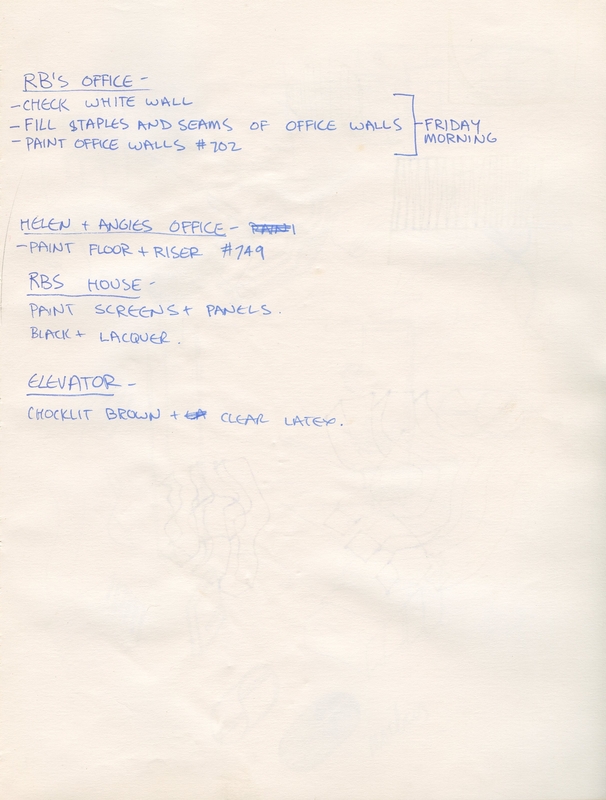 RB'S OFFICE -
- CHECK WHITE WALL
- FILL STAPLES AND SEAMS OF OFFICE WALLS
- PAINT OFFICE WALLS #702
FRIDAY
MORNING
HELEN + ANGIES OFFICE -
- PAINT FLOOR + RISER #749
RBS HOUSE -
PAINT SCREENS + PANELS.
BLACK + LACQUER.
ELEVATOR -
CHOCKLIT BROWN + CLEAR LATEX.